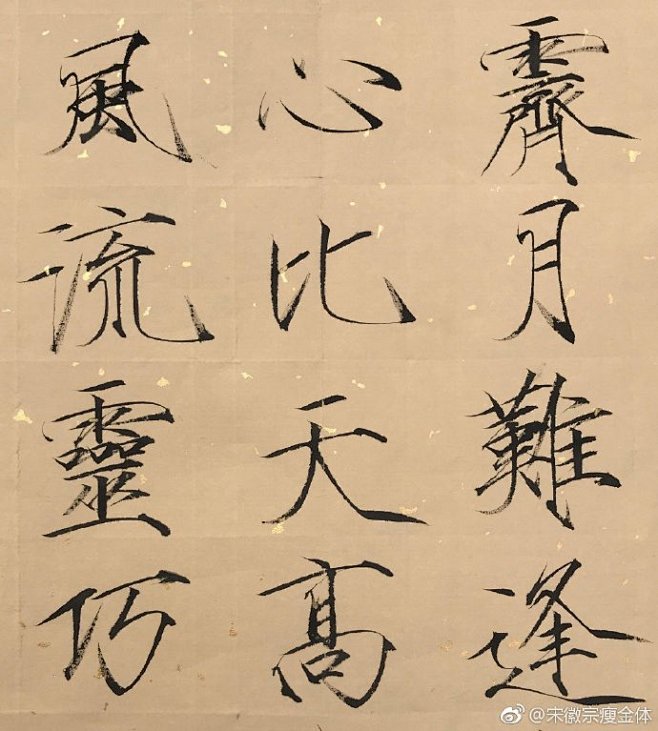 霽月難逢
心比天高
風流靈巧
@宋徽宗瘦金体